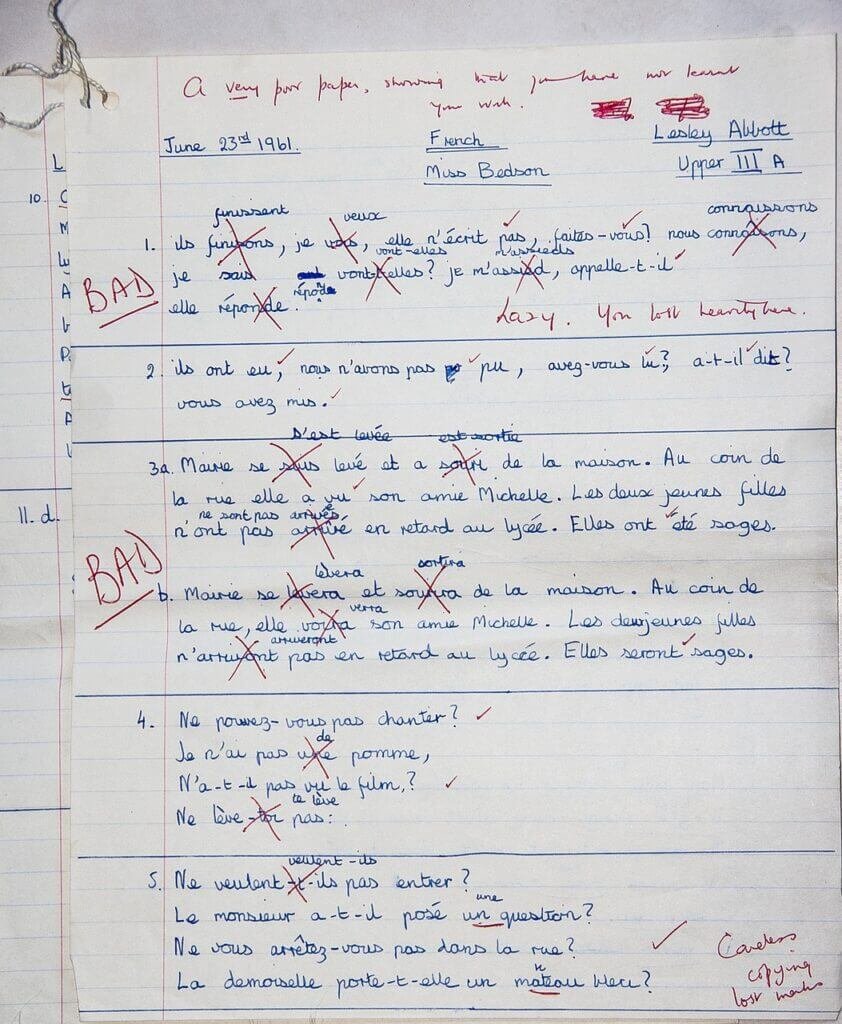 A very poor paper, showing that you have not learnt
your work.
June 23rd 1961. French Lesley Abbott
Miss Bedson Upper III A
finissent veux connaissons
1. ils finisons, je vois, elle n'écrit pas, faites-vous? nous connaisons,
vont-elles m'assieds
je sais vont-t-elles? je m'assied, appelle-t-il
BAD
elle réponde. répond
Lazy. You lost heavily here.
2. ils ont eu, nous n'avons pas pu, avez-vous lu?, a-t-il dit?
vous avez mis.
s'est levée est sortie
3a. Mairie se suis levé et a souri de la maison. Au coin de
la rue elle a vu son amie Michelle. Les deux jeunes filles
ne sont pas arrivées
n'ont pas arrivé en retard au lycée. Elles ont été sages.
BAD
lèvera sortira
b. Mairie se levera et sourira de la maison. Au coin de
verra
la rue, elle voira son amie Michelle. Les deuxjeunes filles
arriveront
n'arrivont pas en retard au lycée. Elles seront sages.
4. Ne pouvez-vous pas chanter?
de
Je n'ai pas une pomme,
N'a-t-il pas vu le film,?
te lève
Ne lève-toi pas:
veulent-ils
5. Ne veulent-t-ils pas entrer?
une
Le monsieur a-t-il posé un question?
Ne vous arrêtez-vous pas dans la rue?
n
La demoiselle porte-t-elle un mateau bleu?
Careless
copying
lost marks
10.
11. d.